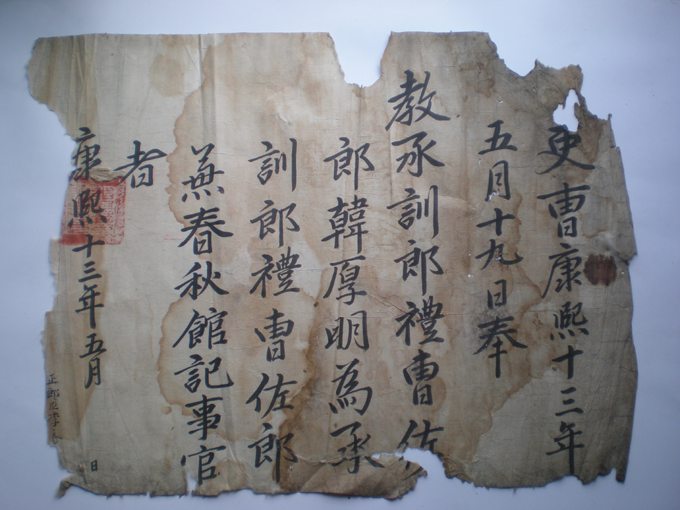 吏曺康熙十三年
五月十九日奉
敎承訓郎禮曺佐
郎韓厚明為承
訓郎禮曺佐郎
兼春秋館記事官
者
康熙十三年五月 日
正郎